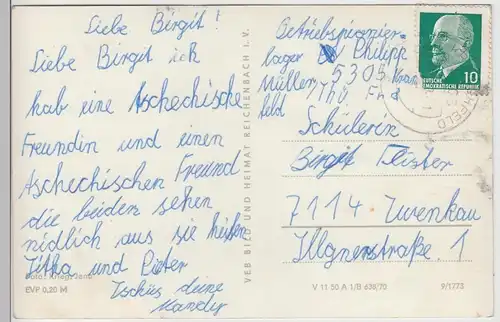 Liebe Birgit!
Liebe Birgit ich
hab eine Aschechische
Freundin und einen
Aschechischen Freund
die beiden sehen
nidlich aus sie heißen
Jitka und Pieter
Tschüs deine
Mandy
Foto: Kriegs,
EVP 0,20 M
VEB BILD UND HEIMAT REICHENBACH I. V.
Betriebspionier-
lager Philipp
Müller 5305 Kran
feld /Thü. Frd
DEUTSCHE
DEMOKRATISCHE REPUBLIK
10
Schülerin
Birgit
7114 Zwenkau
Illgnerstraße 1
V 11 50 A 1/B 636/70
9/1773